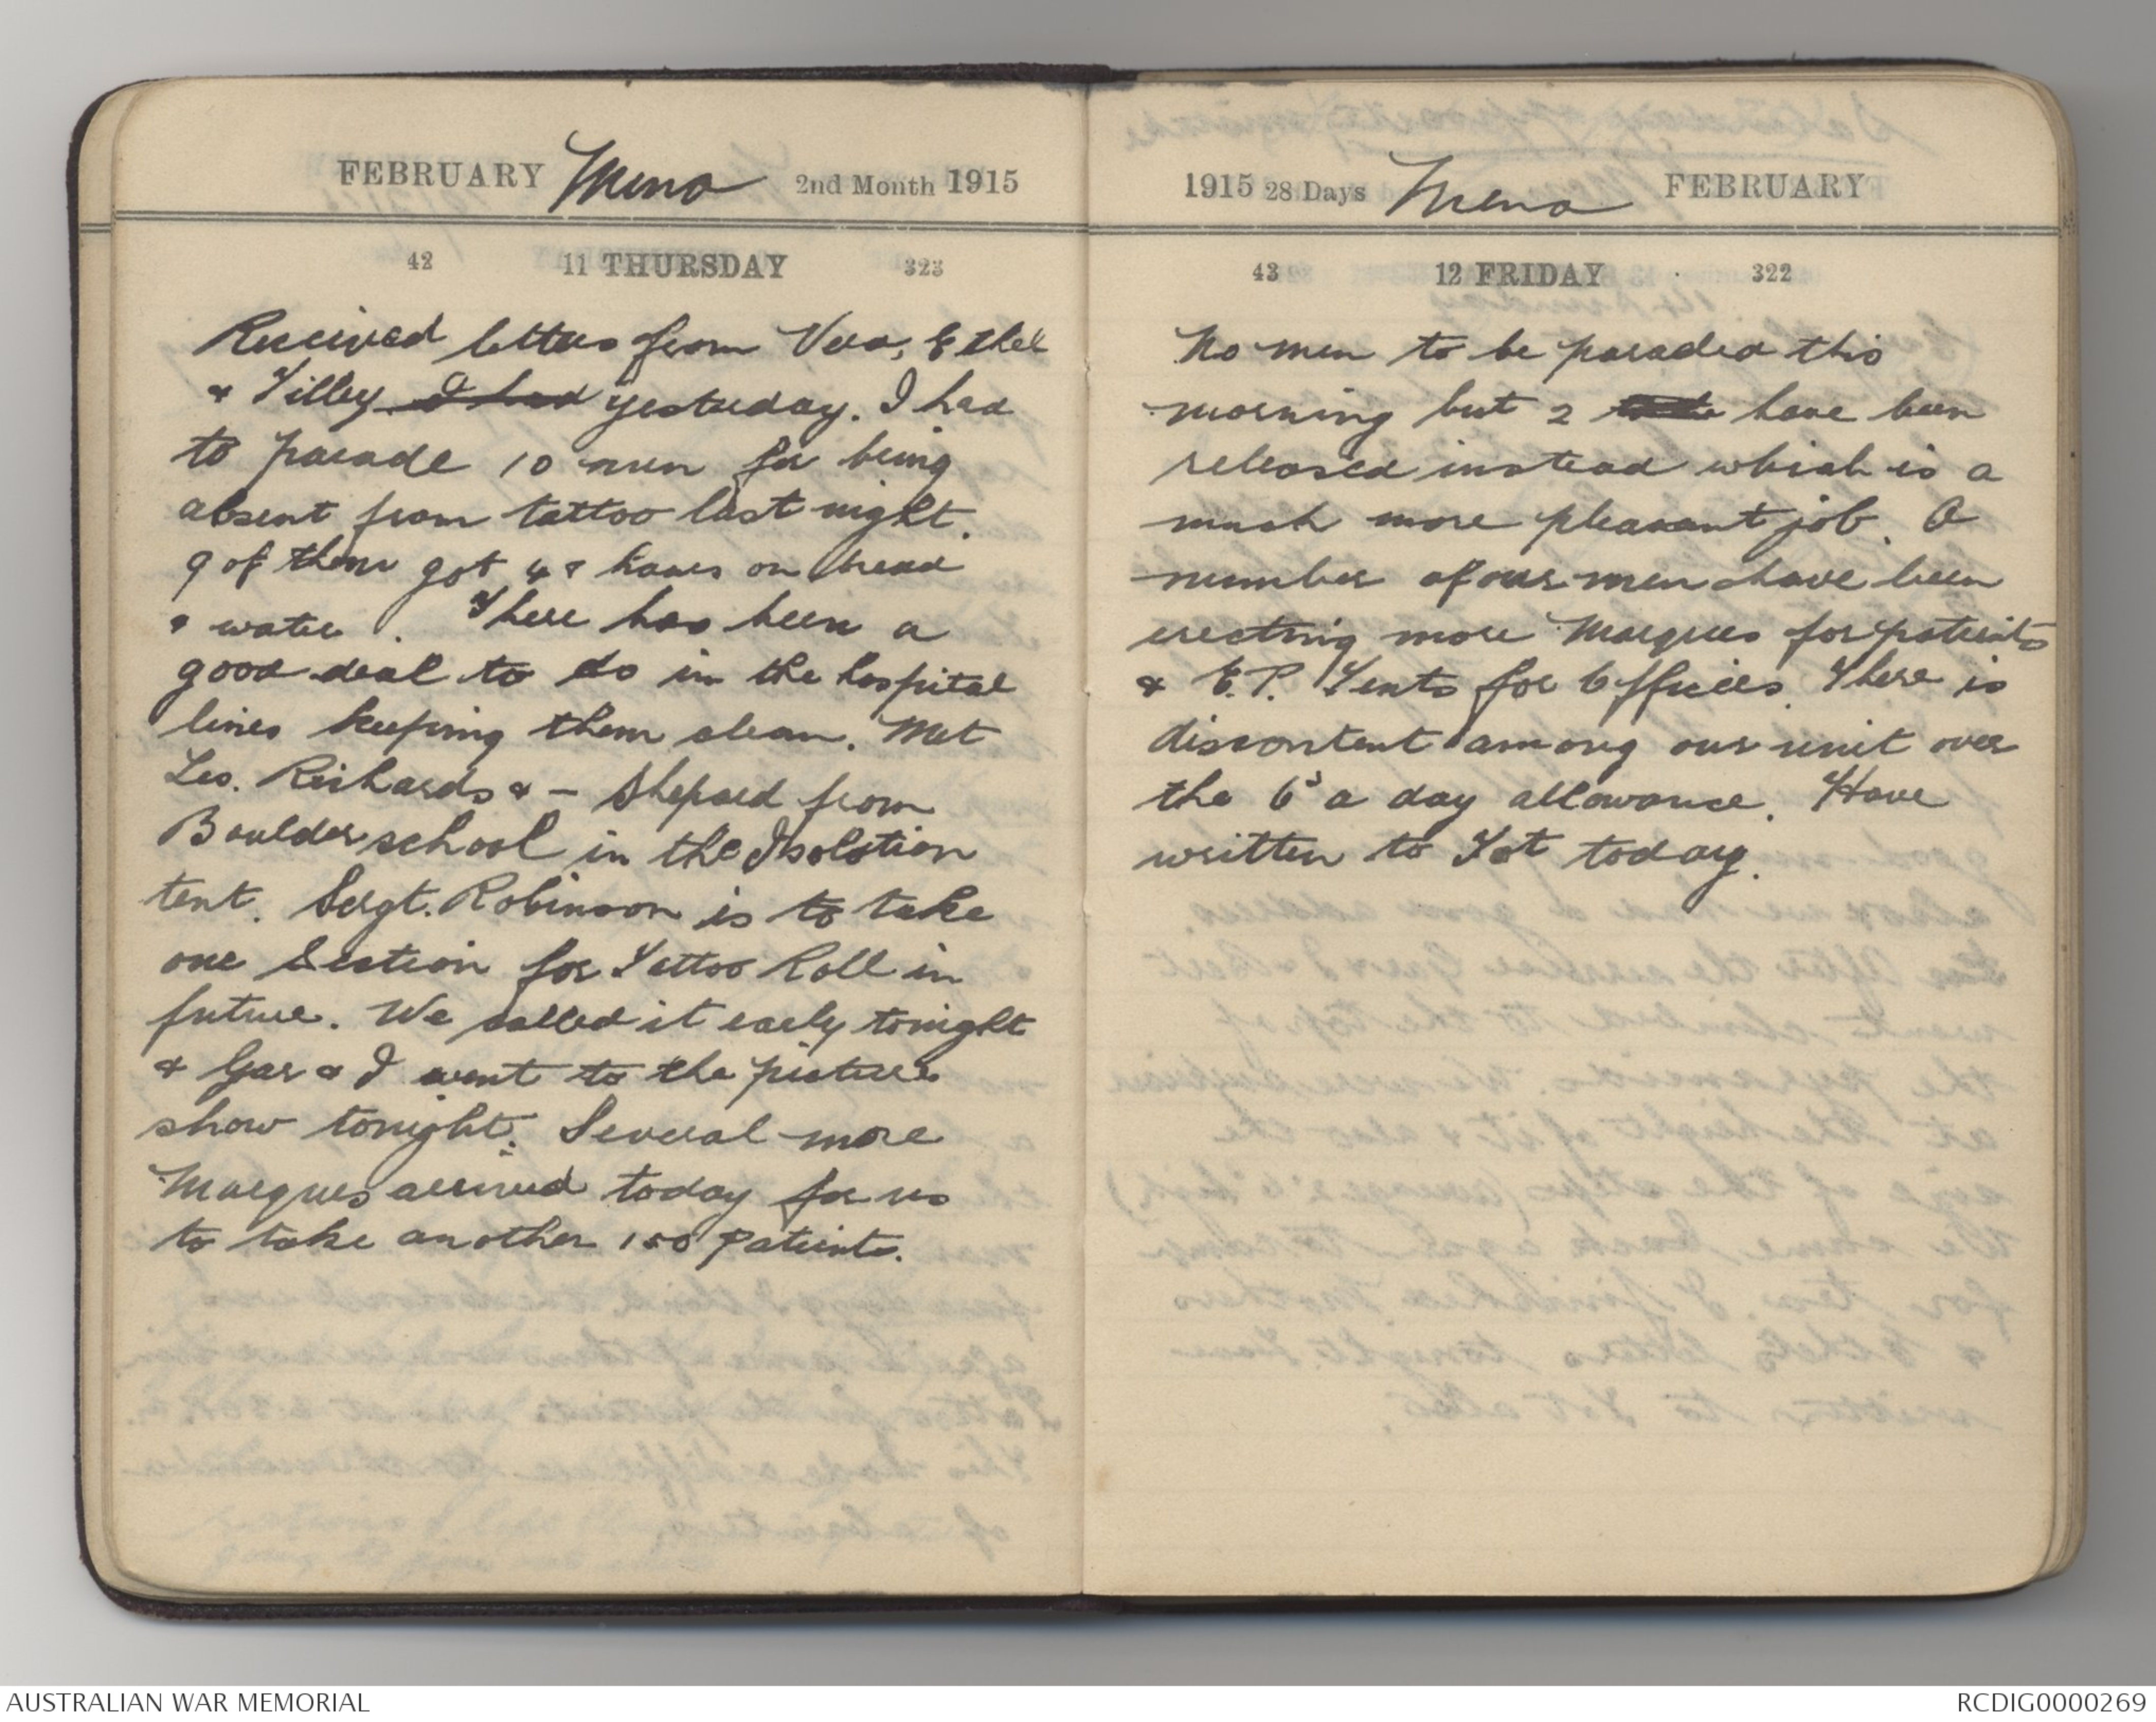 FEBRUARY Mena 2nd Month 1915
42 11 THURSDAY 323
Received letters from Vera, Ethel
& Tilley I had yesterday. I had
to parade 10 men for being
absent from tattoo last night.
9 of them got 48 hours on bread
& water. There has been a
good deal to do in the hospital
lines keeping them clean. Met
Les. Richards & - Shepard from
Boulder school in the Isolation
tent. Sergt. Robinson is to take
one Section for Tattoo Roll in
future. We called it early tonight
& Gar & I went to the pictures
show tonight. Several more
Marques arrived today for us
to take another 150 patients.
1915 28 Days Mena FEBRUARY
43 12 FRIDAY 322
No men to be paraded this
morning but 2 have been
released instead which is a
much more pleasant job. A
number of our men have been
erecting more Marques for patients
& E.P. Tents for Officers. There is
discontent among our unit over
the 6s a day allowance. Have
written to Tot today.
AUSTRALIAN WAR MEMORIAL
RCDIG0000269